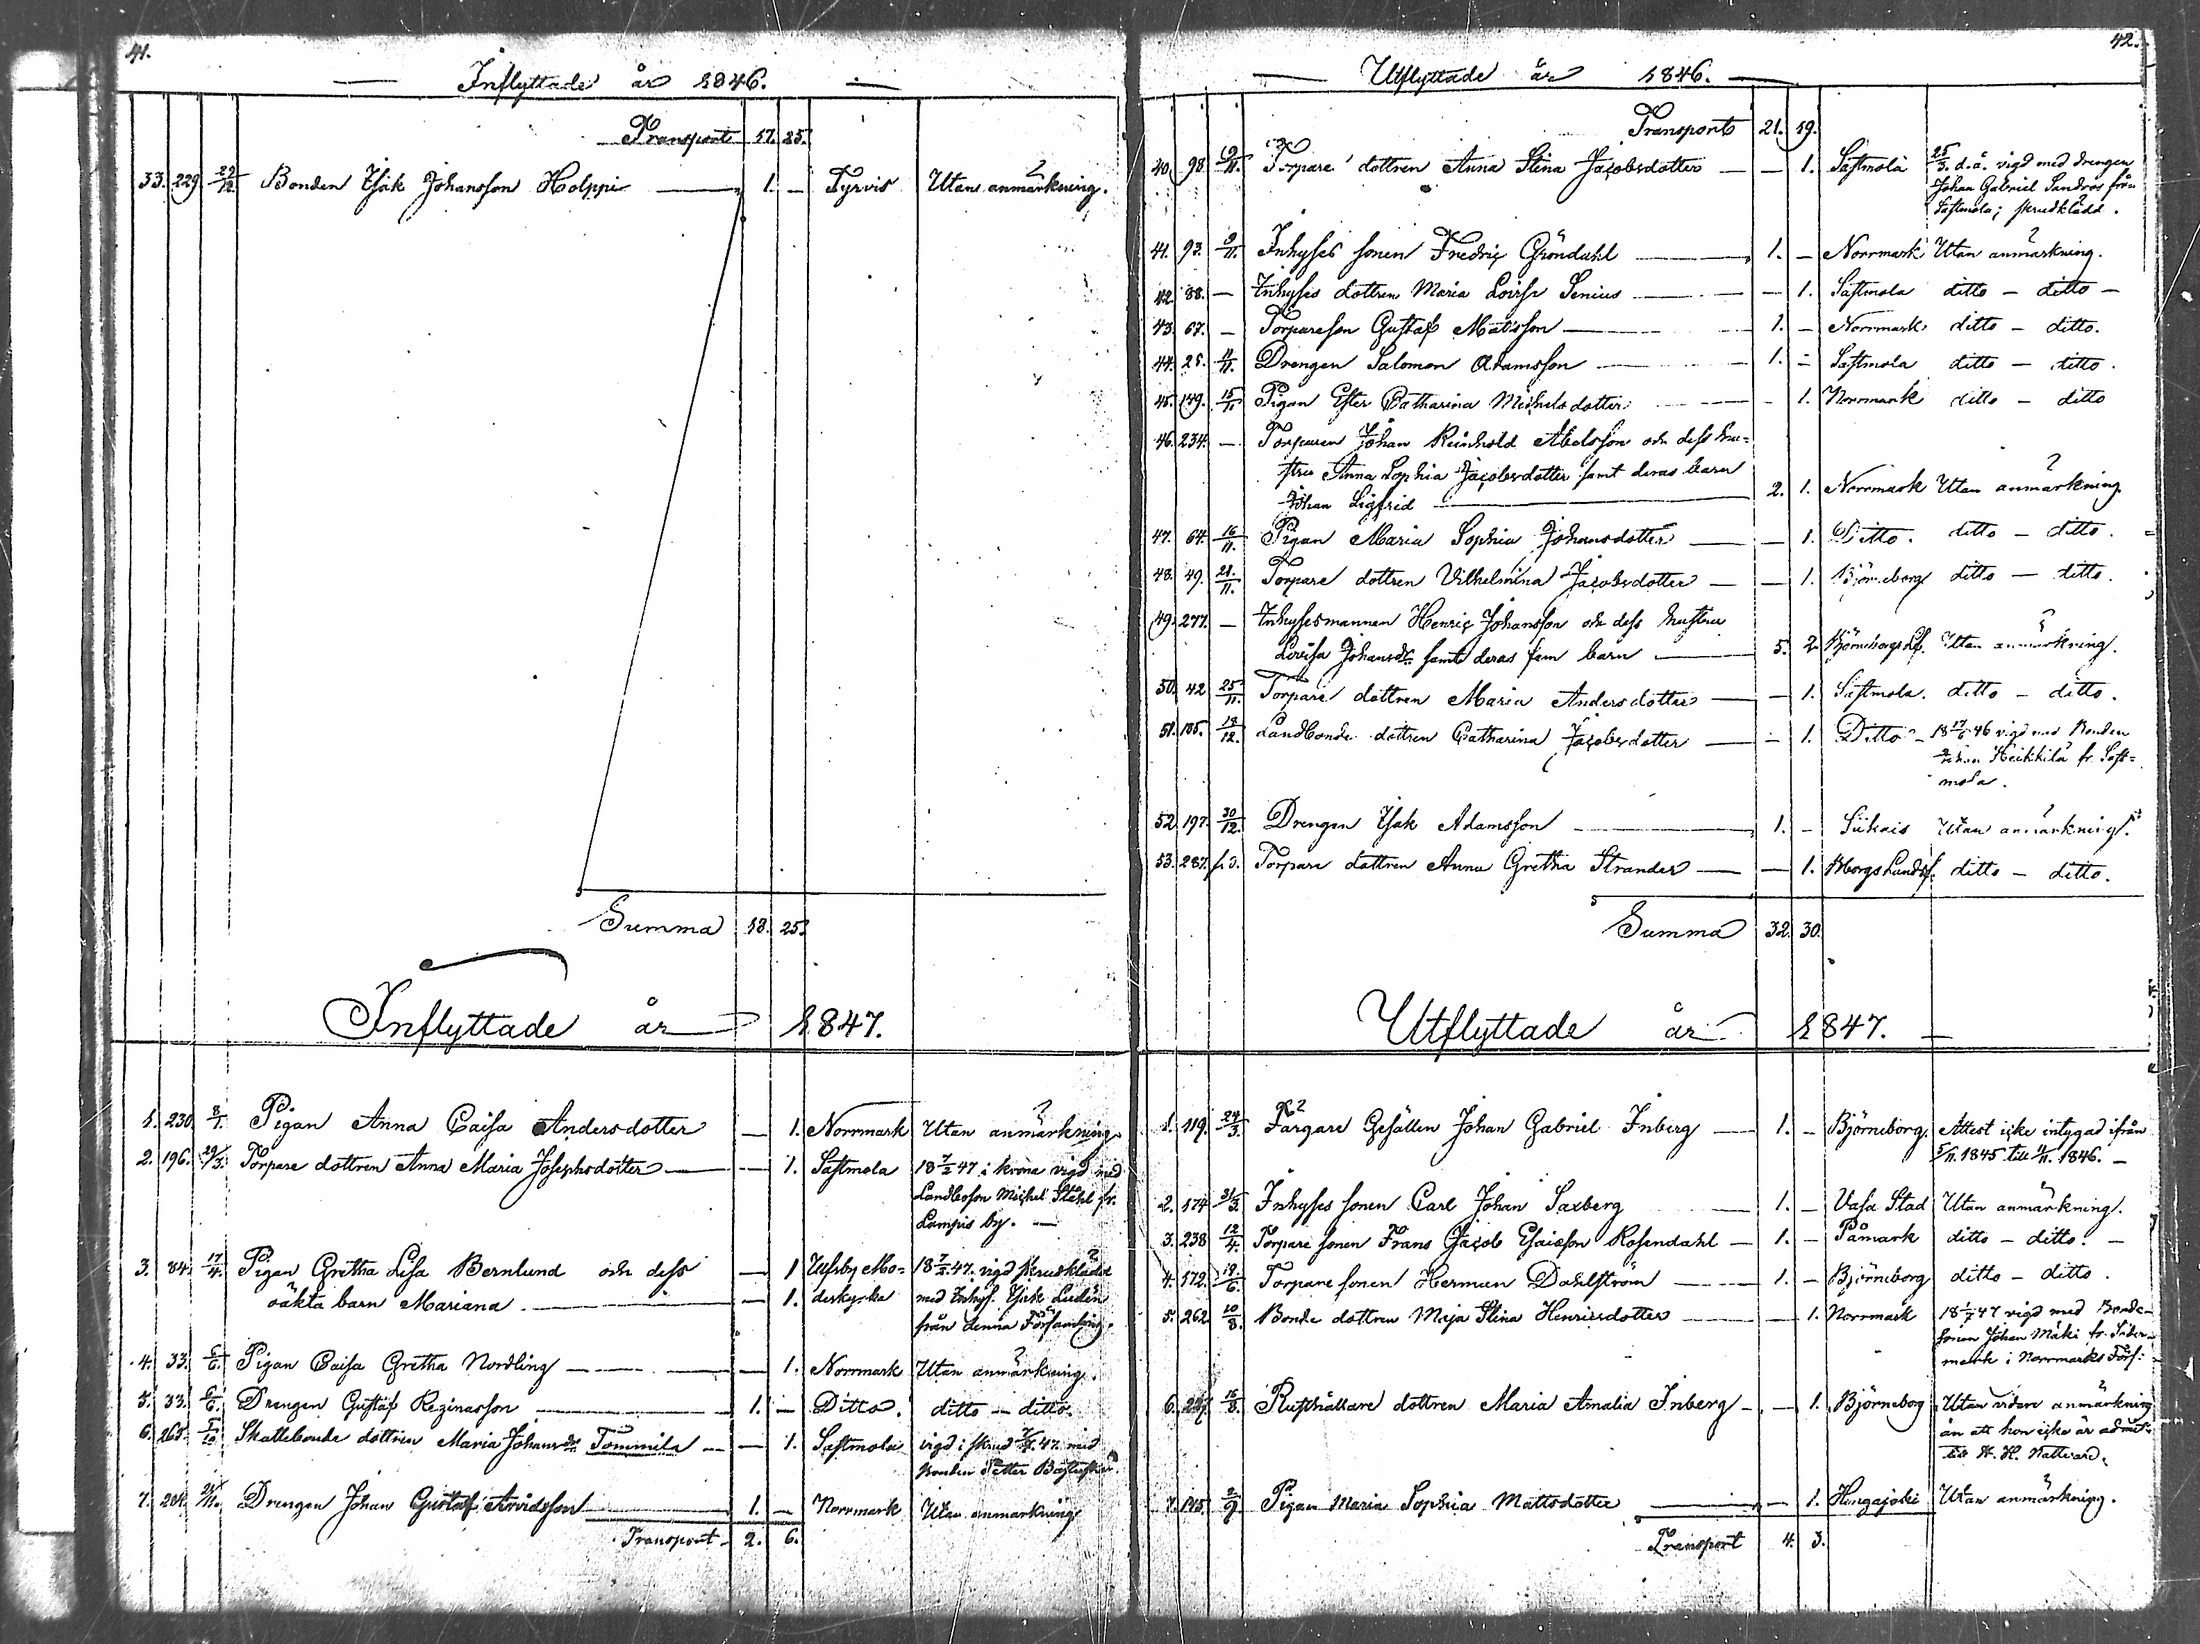 41.
Inflyttade år 1846.
Transport 17. 25.
33. 229 29/12. Bonden Isak Johansson Holppi 1. — Tyrvis Utan anmärkning.
Summa 18. 25.
Inflyttade år 1847.
1. 230. 8/1. Pigan Anna Caisa Andersdotter — 1. Norrmark Utan anmärkning
2. 196. 29/3. Torpare dottren Anna Maria Josephsdotter — 1. Saftmola 18 7/2 47 i krona vigd med
Landbosson Michel Ståhl fr.
Lampis by. —
3. 84. 17/4. Pigan Gretha Lisa Bernlund och dess — 1 Ulfsby Mo= 18 7/2 47. vigd skrudklädd
oäkta barn Mariana. — 1. derkyrka med Inhys. Isak Ludén
från denna Församling.
4. 33. Pigan Caisa Gretha Nordling — 1. Norrmark Utan anmärkning.
5. 33. Drengen Gustaf Reginasson 1. — Ditto. ditto — ditto.
6. 265. Skattebonde dottren Maria Johansdr Tommila — 1. Saftmola vigd i skrud 47 med
Bonden Petter
7. 204. Drengen Johan Gustaf Arvidsson 1. — Norrmark Utan anmärkning
Transport 2. 6.
42.
Utflyttade år 1846.
Transport 21. 19.
40. 98. 9/11. Torpare dottren Anna Stina Jacobsdotter — 1. Saftmola 25/3. d.å. vigd med drengen
Johan Gabriel Sandros från
Saftmola; skrudklädd.
41. 93. 9/11. Inhyses sonen Fredric Gröndahl 1. — Norrmark Utan anmärkning.
42. 88. — Inhyses dottren Maria Lovisa Senius — 1. Saftmola ditto — ditto —
43. 67. — Torpareson Gustaf Matsson 1. — Norrmark ditto — ditto.
44. 25. 11/11. Drengen Salomon Adamsson 1. — Saftmola ditto — ditto.
45. 149. 15/11 Pigan Ester Catharina Michelsdotter — 1. Norrmark ditto — ditto
46. 234. — Torparen Johan Reinhold Abelsson och dess hu=
stru Anna Sophia Jacobsdotter samt deras barn
Johan Sigfrid 2. 1. Norrmark Utan anmärkning
47. 64. 16/11. Pigan Maria Sophia Johansdotter — 1. Ditto. ditto — ditto.
48. 49. 21/11. Torpare dottren Vilhelmina Jacobsdotter — 1. Björneborg ditto — ditto.
49. 277. — Inhysesmannen Henric Johansson och dess hustru
Lovisa Johansdr. samt deras fem barn 5. 2. Björneborgs Lf. Utan anmärkning.
50. 42 25/11. Torpare dottren Maria Andersdotter — 1. Saftmola. ditto — ditto.
51. 185. 18/12. Landbonde dottren Catharina Jacobsdotter — 1. Ditto — 18 17/6 46 vigd med Bonden
Johan Heikkilä fr. Saft=
mola.
52. 197. 30/12. Drengen Isak Adamsson 1. — Siikais Utan anmärkning.
53. 287. s.d. Torpare dottren Anna Gretha Strander — 1. Bborgs Landsf. ditto — ditto.
Summa 32. 30.
Utflyttade år 1847. —
1. 119. 24/3. Färgare Gesällen Johan Gabriel Inberg 1. — Björneborg. Attest icke intygad ifrån
5/11. 1845 till 11/11. 1846. —
2. 174 31/3. Inhyses sonen Carl Johan Saxberg 1. — Vasa Stad Utan anmärkning.
3. 238 12/4. Torpare sonen Frans Jacob Esaiasson Rosendahl 1. — Påmark ditto — ditto. —
4. 172. 19/6. Torpare sonen Herman Dahlström 1. — Björneborg ditto — ditto.
5. 262. 10/8. Bonde dottren Maja Stina Henricsdotter — 1. Norrmark 18 1/7 47 vigd med Bonde=
sonen Johan Mäki fr. Söder=
mark i Norrmarks Förs:
6. 15/8. Rusthållare dottren Maria Amalia Inberg — 1. Björneborg Utan vidare anmärkning
än att hon icke är admit=
till H. H. Nattvard.
7. 9. Pigan Maria Sophia Mattsdotter — 1. Hongajoki Utan anmärkning.
Transport 4. 3.